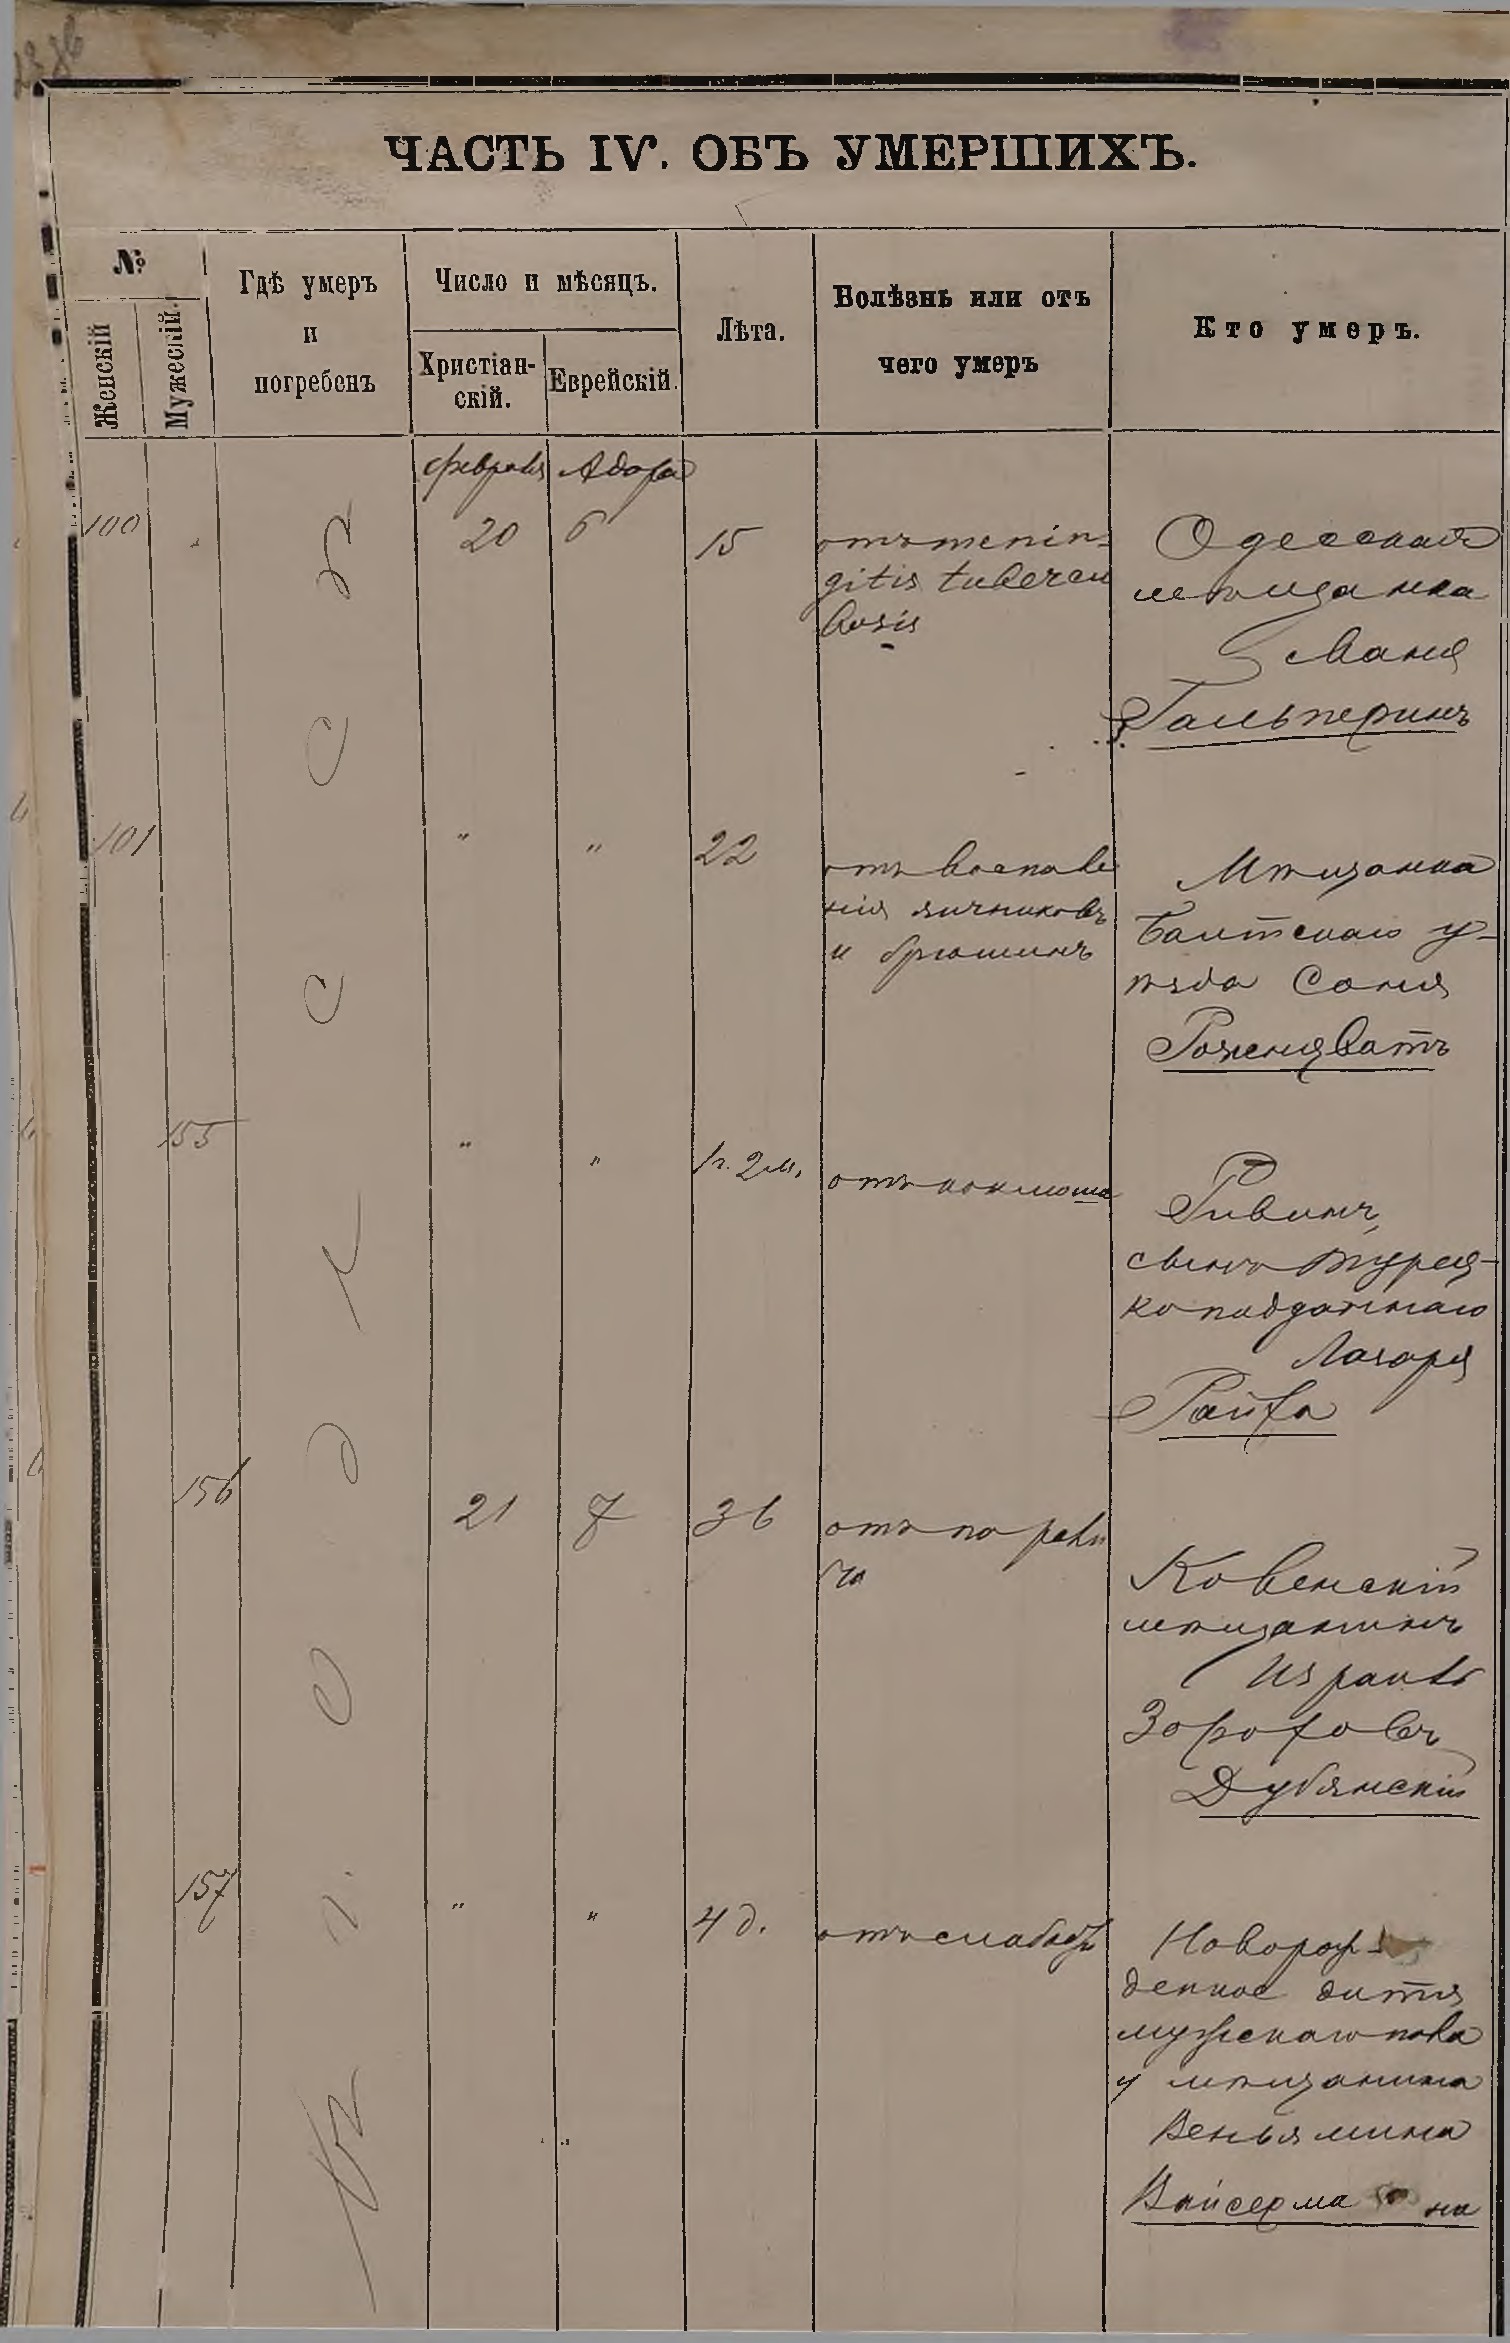 ЧАСТЬ IV. ОБЪ УМЕРШИХЪ.
№
Женскій
Мужескій.
Гдѣ умеръ
и
погребенъ
Число и мѣсяцъ.
Христіан-
скій.
Еврейскій.
Лѣта.
Болѣзнь или отъ
чего умеръ
Кто умеръ.
въ г. Одессѣ
февраля Адора
100
20
6
15
отъ menin-
gitis tubercu
losis
Одесская
мѣщанка
Маня
Гальперинъ
101
"
"
22
отъ воспале
нія яичниковъ
и брюшинъ
Мѣщанка
Балтскаго у-
ѣзда Соня
Роженцватъ
155
"
"
1г. 2м.
отъ коклюша
Рувинъ,
сынъ турец-
коподданнаго
Лазаря
Райха
156
21
7
36
отъ
Ковенскій
мѣщанинъ
Израиль
Дубянскій
157
"
"
4 д.
отъ слабости
Новорож-
денное дитя
мужскаго пола
у мѣщанина
Веньямина
Вайсермана